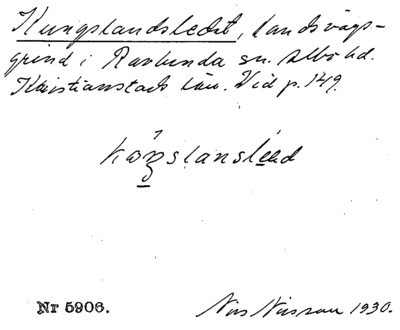 Kungslandsledet, landsvägs-
grind i Ravlunda sn. Albo hd.
Kristianstads län. Vid p. 149.
Nr 5906.
Nils Nilsson 1930.